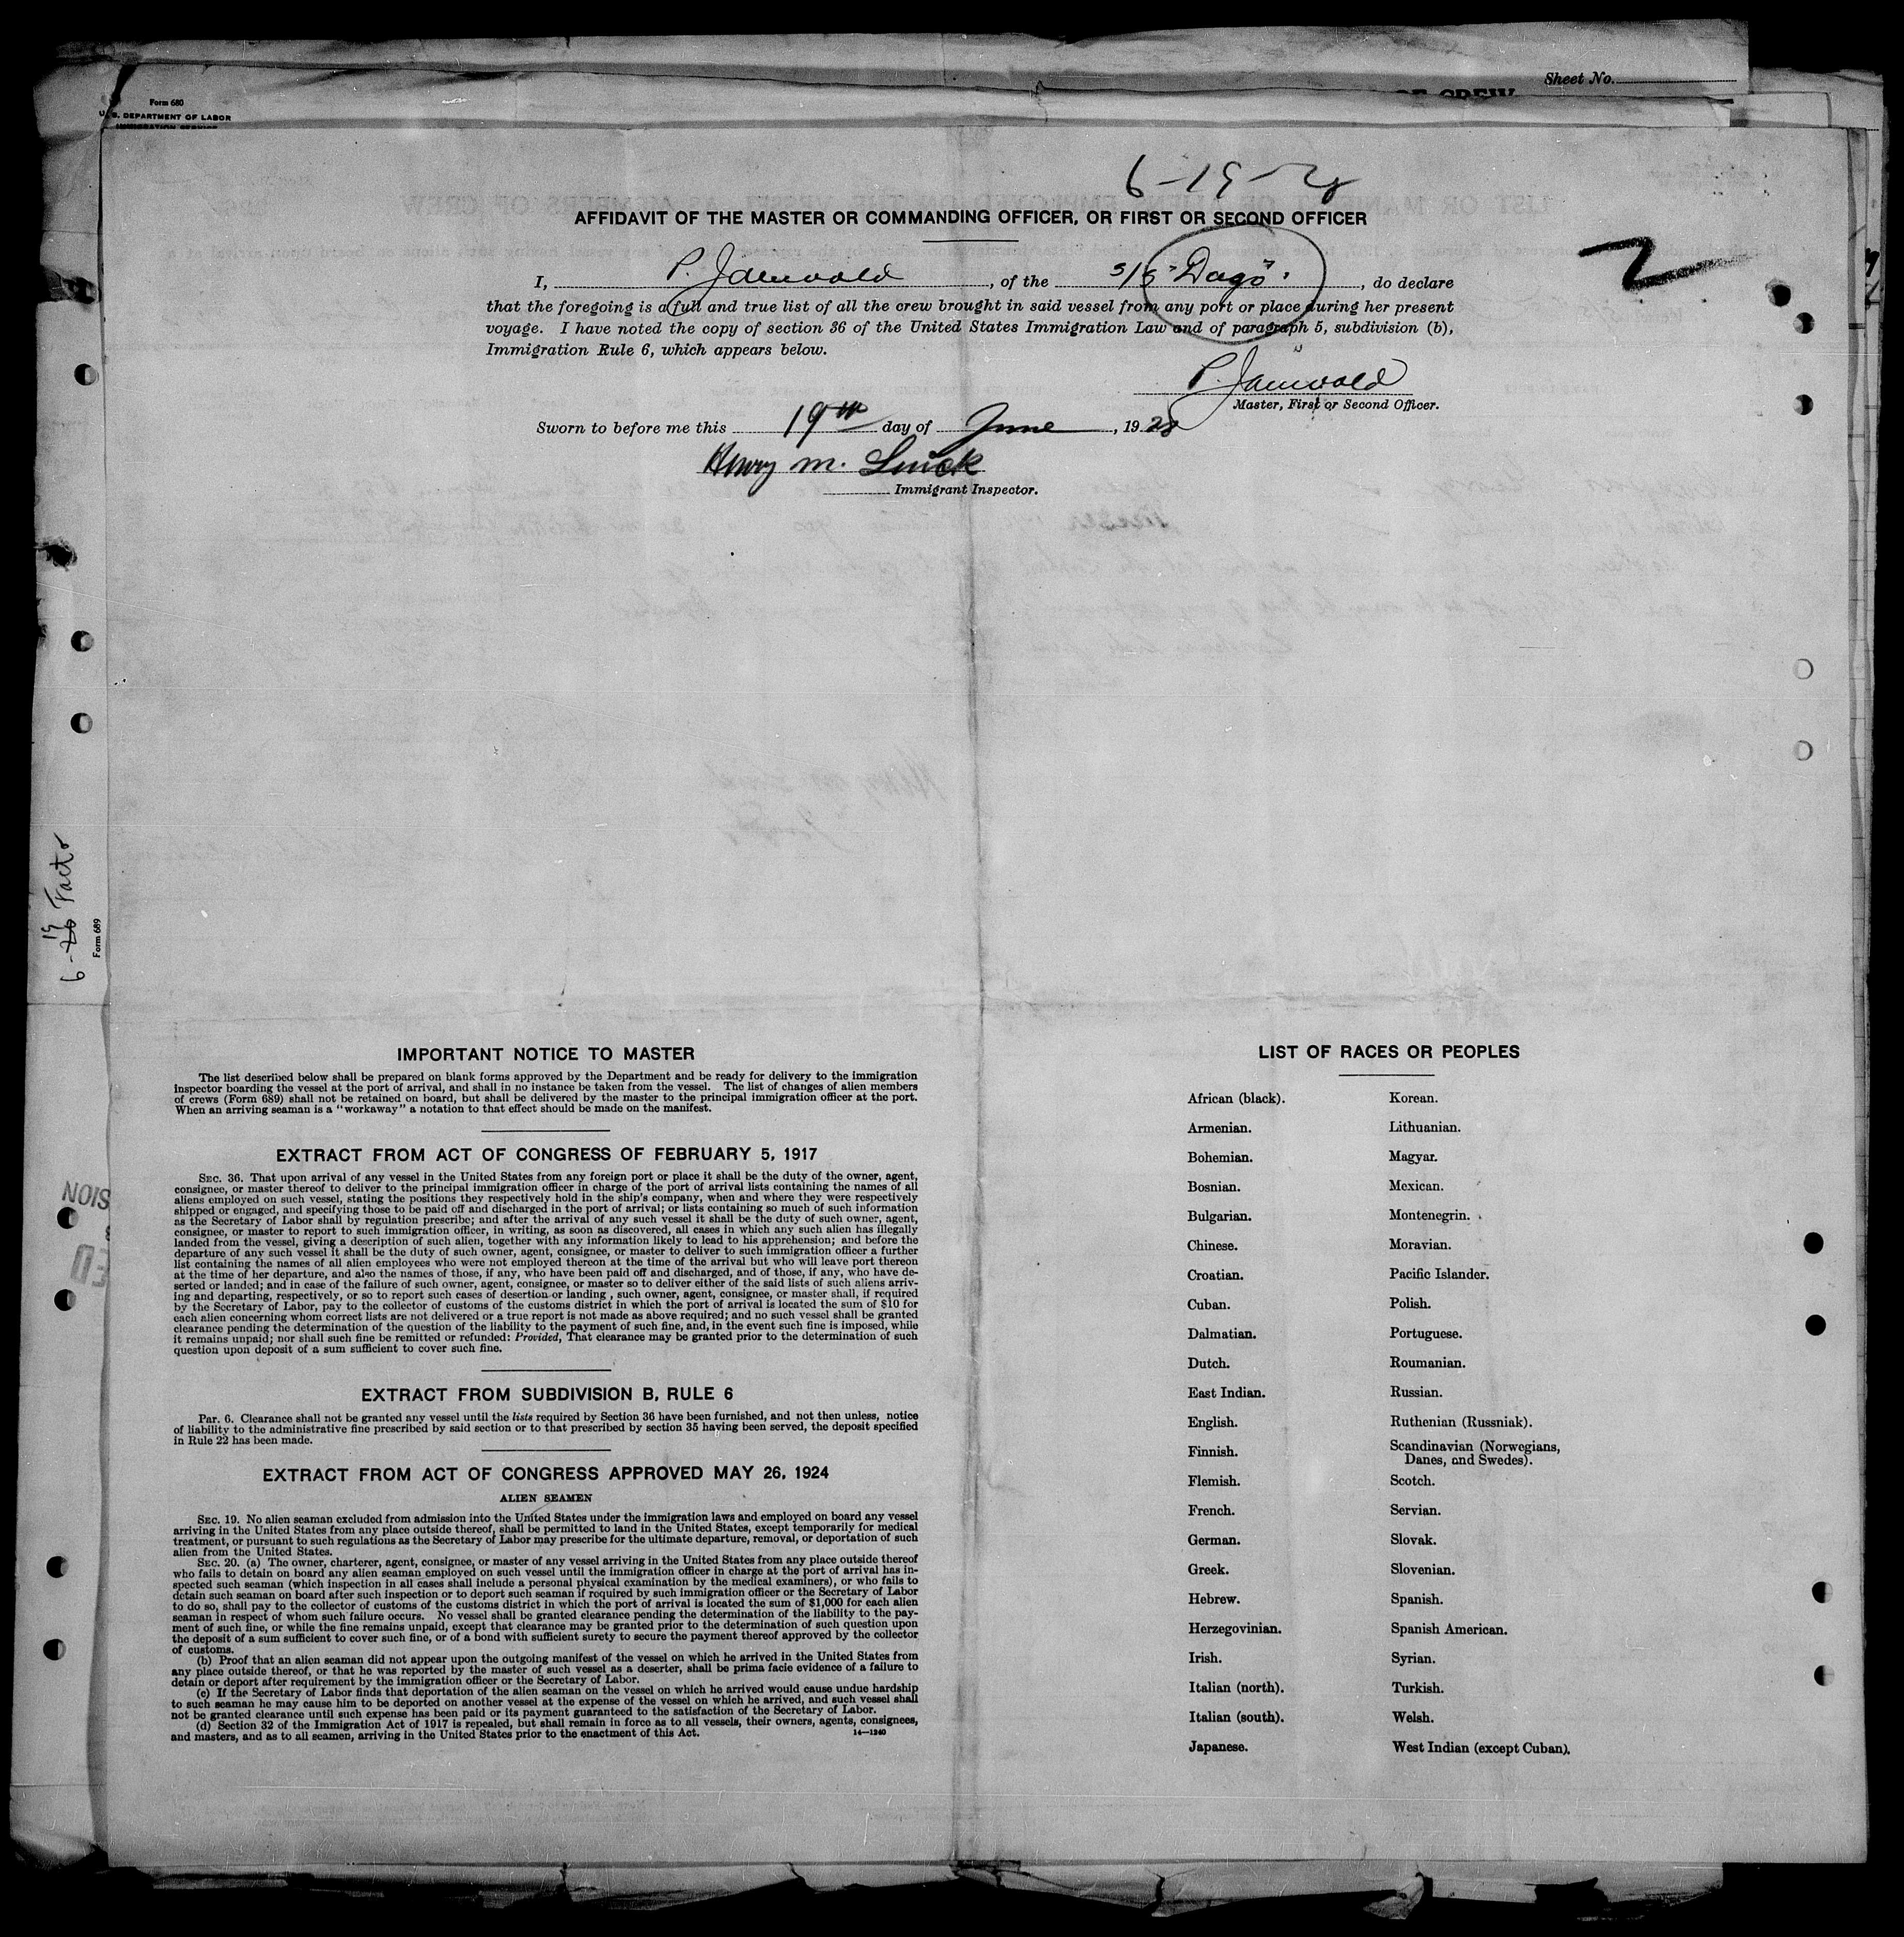 Sheet No.
Form 680
U. S. DEPARTMENT OF LABOR
IMMIGRATION SERVICE
OF CREW
6-19-28
AFFIDAVIT OF THE MASTER OR COMMANDING OFFICER, OR FIRST OR SECOND OFFICER
2
I, P. , of the S/S "Dago", do declare
that the foregoing is a full and true list of all the crew brought in said vessel from any port or place during her present
voyage. I have noted the copy of section 36 of the United States Immigration Law and of paragraph 5, subdivision (b),
Immigration Rule 6, which appears below.
P.
Master, First or Second Officer.
Sworn to before me this 19th day of June, 1928
Henry M.
Immigrant Inspector.
6-19
Form 689
SION
ED
IMPORTANT NOTICE TO MASTER
The list described below shall be prepared on blank forms approved by the Department and be ready for delivery to the immigration
inspector boarding the vessel at the port of arrival, and shall in no instance be taken from the vessel. The list of changes of alien members
of crews (Form 689) shall not be retained on board, but shall be delivered by the master to the principal immigration officer at the port.
When an arriving seaman is a "workaway" a notation to that effect should be made on the manifest.
EXTRACT FROM ACT OF CONGRESS OF FEBRUARY 5, 1917
SEC. 36. That upon arrival of any vessel in the United States from any foreign port or place it shall be the duty of the owner, agent,
consignee, or master thereof to deliver to the principal immigration officer in charge of the port of arrival lists containing the names of all
aliens employed on such vessel, stating the positions they respectively hold in the ship's company, when and where they were respectively
shipped or engaged, and specifying those to be paid off and discharged in the port of arrival; or lists containing so much of such information
as the Secretary of Labor shall by regulation prescribe; and after the arrival of any such vessel it shall be the duty of such owner, agent,
consignee, or master to report to such immigration officer, in writing, as soon as discovered, all cases in which any such alien has illegally
landed from the vessel, giving a description of such alien, together with any information likely to lead to his apprehension; and before the
departure of any such vessel it shall be the duty of such owner, agent, consignee, or master to deliver to such immigration officer a further
list containing the names of all alien employees who were not employed thereon at the time of the arrival but who will leave port thereon
at the time of her departure, and also the names of those, if any, who have been paid off and discharged, and of those, if any, who have de-
serted or landed; and in case of the failure of such owner, agent, consignee, or master so to deliver either of the said lists of such aliens arriv-
ing and departing, respectively, or so to report such cases of desertion or landing , such owner, agent, consignee, or master shall, if required
by the Secretary of Labor, pay to the collector of customs of the customs district in which the port of arrival is located the sum of $10 for
each alien concerning whom correct lists are not delivered or a true report is not made as above required; and no such vessel shall be granted
clearance pending the determination of the question of the liability to the payment of such fine, and, in the event such fine is imposed, while
it remains unpaid; nor shall such fine be remitted or refunded: Provided, That clearance may be granted prior to the determination of such
question upon deposit of a sum sufficient to cover such fine.
EXTRACT FROM SUBDIVISION B, RULE 6
Par. 6. Clearance shall not be granted any vessel until the lists required by Section 36 have been furnished, and not then unless, notice
of liability to the administrative fine prescribed by said section or to that prescribed by section 35 having been served, the deposit specified
in Rule 22 has been made.
EXTRACT FROM ACT OF CONGRESS APPROVED MAY 26, 1924
ALIEN SEAMEN
SEC. 19. No alien seaman excluded from admission into the United States under the immigration laws and employed on board any vessel
arriving in the United States from any place outside thereof, shall be permitted to land in the United States, except temporarily for medical
treatment, or pursuant to such regulations as the Secretary of Labor may prescribe for the ultimate departure, removal, or deportation of such
alien from the United States.
SEC. 20. (a) The owner, charterer, agent, consignee, or master of any vessel arriving in the United States from any place outside thereof
who fails to detain on board any alien seaman employed on such vessel until the immigration officer in charge at the port of arrival has in-
spected such seaman (which inspection in all cases shall include a personal physical examination by the medical examiners), or who fails to
detain such seaman on board after such inspection or to deport such seaman if required by such immigration officer or the Secretary of Labor
to do so, shall pay to the collector of customs of the customs district in which the port of arrival is located the sum of $1,000 for each alien
seaman in respect of whom such failure occurs. No vessel shall be granted clearance pending the determination of the liability to the pay-
ment of such fine, or while the fine remains unpaid, except that clearance may be granted prior to the determination of such question upon
the deposit of a sum sufficient to cover such fine, or of a bond with sufficient surety to secure the payment thereof approved by the collector
of customs.
(b) Proof that an alien seaman did not appear upon the outgoing manifest of the vessel on which he arrived in the United States from
any place outside thereof, or that he was reported by the master of such vessel as a deserter, shall be prima facie evidence of a failure to
detain or deport after requirement by the immigration officer or the Secretary of Labor.
(c) If the Secretary of Labor finds that deportation of the alien seaman on the vessel on which he arrived would cause undue hardship
to such seaman he may cause him to be deported on another vessel at the expense of the vessel on which he arrived, and such vessel shall
not be granted clearance until such expense has been paid or its payment guaranteed to the satisfaction of the Secretary of Labor.
(d) Section 32 of the Immigration Act of 1917 is repealed, but shall remain in force as to all vessels, their owners, agents, consignees,
and masters, and as to all seamen, arriving in the United States prior to the enactment of this Act. 14—1240
LIST OF RACES OR PEOPLES
African (black).
Armenian.
Bohemian.
Bosnian.
Bulgarian.
Chinese.
Croatian.
Cuban.
Dalmatian.
Dutch.
East Indian.
English.
Finnish.
Flemish.
French.
German.
Greek.
Hebrew.
Herzegovinian.
Irish.
Italian (north).
Italian (south).
Japanese.
Korean.
Lithuanian.
Magyar.
Mexican.
Montenegrin.
Moravian.
Pacific Islander.
Polish.
Portuguese.
Roumanian.
Russian.
Ruthenian (Russniak).
Scandinavian (Norwegians,
Danes, and Swedes).
Scotch.
Servian.
Slovak.
Slovenian.
Spanish.
Spanish American.
Syrian.
Turkish.
Welsh.
West Indian (except Cuban).